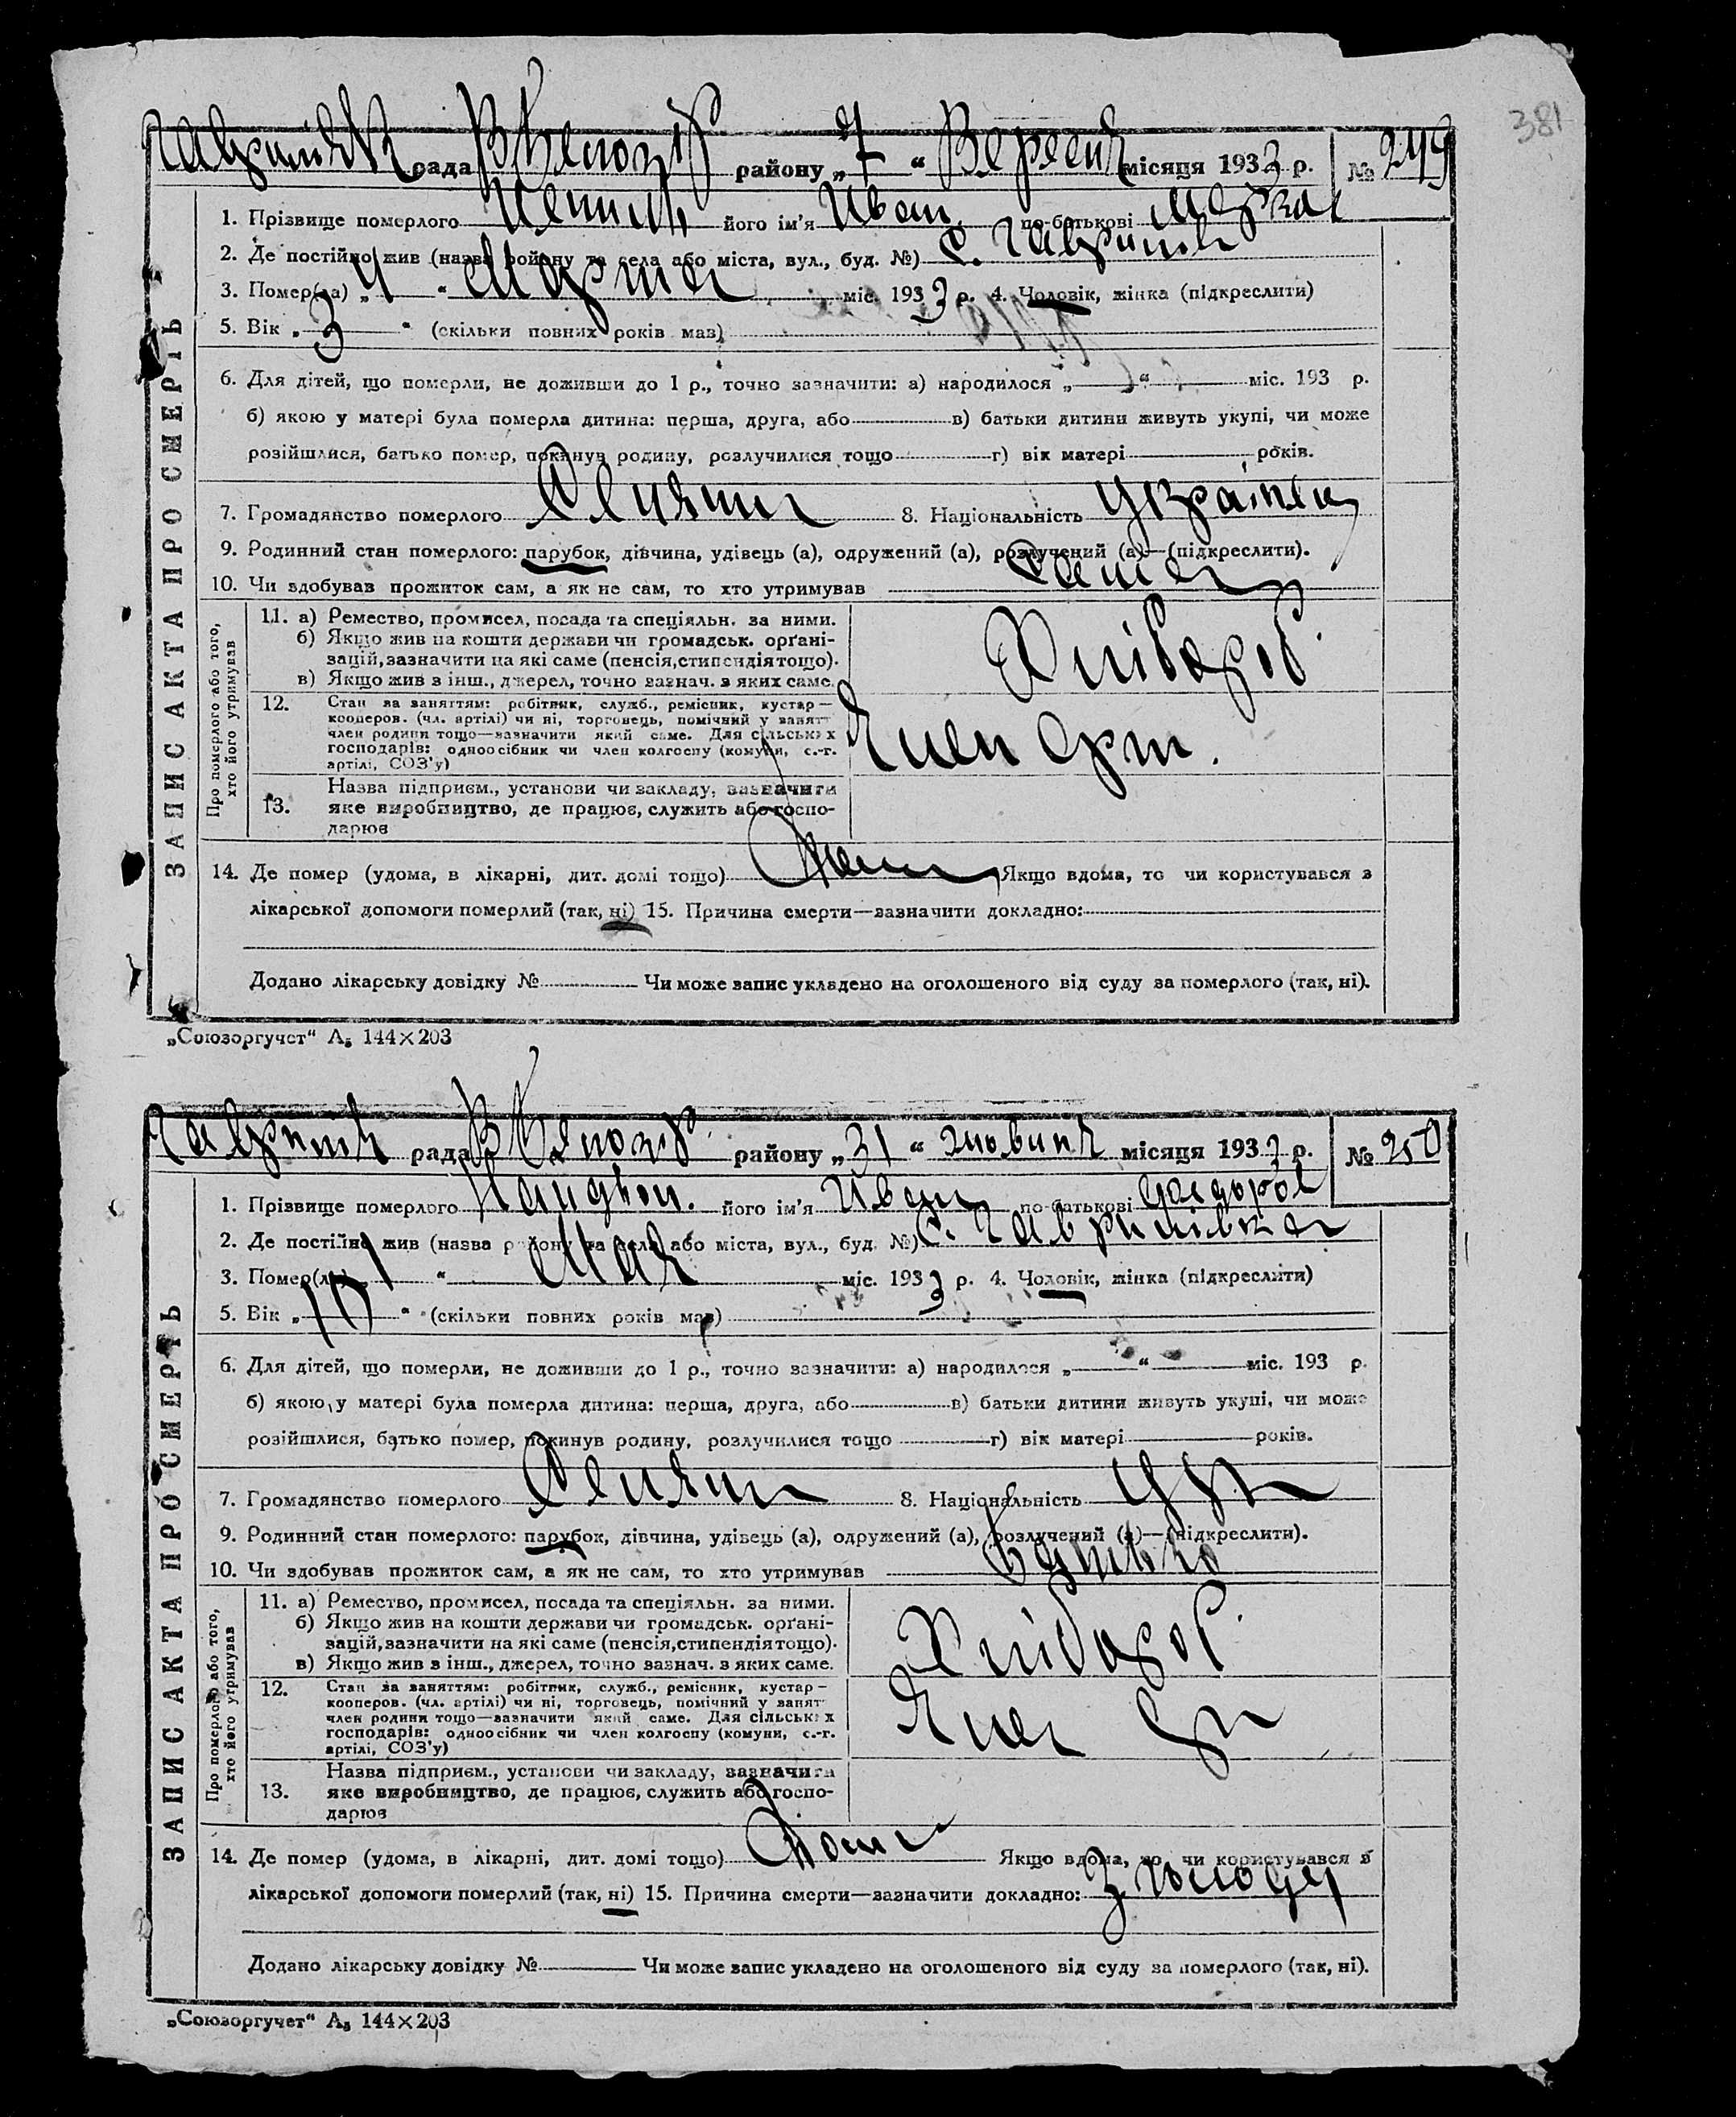 381
рада району „7“ Вересня місяця 1933 р. № 249
1. Прізвище померлого його ім'я Иван по-батькові
2. Де постійно жив (назва району та села або міста, вул., буд. №) с.
3. Помер(ла) „4“ Марта міс. 1933 р. 4. Чоловік, жінка (підкреслити)
5. Вік „3“ (скільки повних років мав)
6. Для дітей, що померли, не доживши до 1 р., точно зазначити: а) народилося „ “ міс. 193 р.
б) якою у матері була померла дитина: перша, друга, або в) батьки дитини живуть укупі, чи може
розійшлися, батько помер, покинув родину, розлучилися тощо г) вік матері років.
7. Громадянство померлого Селянин 8. Національність
9. Родинний стан померлого: парубок, дівчина, удівець (а), одружений (а), розлучений (а)—(підкреслити).
10. Чи здобував прожиток сам, а як не сам, то хто утримував
ЗАПИС АКТА ПРО СМЕРТЬ
Про померлого або того,
хто його утримував
11. а) Ремество, промисел, посада та спеціяльн. за ними.
б) Якщо жив на кошти держави чи громадськ. орґані-
зацій, зазначити на які саме (пенсія, стипендія тощо).
в) Якщо жив з інш., джерел, точно зазнач. з яких саме.
Хлібороб.
12. Стан за заняттям: робітник, служб., ремісник, кустар—
кооперов. (чл. артілі) чи ні, торговець, помічний у занятт
член родини тощо—зазначити який саме. Для сільських
господарів: одноосібник чи член колгоспу (комуни, с.-г.
артілі, СОЗ'у)
Член арт.
13. Назва підприєм., установи чи закладу, зазначити
яке виробництво, де працює, служить або госпо-
дарює
14. Де помер (удома, в лікарні, дит. домі тощо) Дома Якщо вдома, то чи користувався з
лікарської допомоги померлий (так, ні) 15. Причина смерти—зазначити докладно:
Додано лікарську довідку № Чи може запис укладено на оголошеного від суду за померлого (так, ні).
„Союзоргучет“ А₅ 144×203
рада району „31“ місяця 1933 р. № 250
1. Прізвище померлого його ім'я Иван по-батькові
2. Де постійно жив (назва району та села або міста, вул., буд. №) с. Гаврилівка
3. Помер(ла) „1“ Мая міс. 1933 р. 4. Чоловік, жінка (підкреслити)
5. Вік „ “ (скільки повних років мав)
6. Для дітей, що померли, не доживши до 1 р., точно зазначити: а) народилося „ “ міс. 193 р.
б) якою у матері була померла дитина: перша, друга, або в) батьки дитини живуть укупі, чи може
розійшлися, батько помер, покинув родину, розлучилися тощо г) вік матері років.
7. Громадянство померлого Селянин 8. Національність Укр
9. Родинний стан померлого: парубок, дівчина, удівець (а), одружений (а), розлучений (а)—(підкреслити).
10. Чи здобував прожиток сам, а як не сам, то хто утримував батько
ЗАПИС АКТА ПРО СМЕРТЬ
Про померлого або того,
хто його утримував
11. а) Ремество, промисел, посада та спеціяльн. за ними.
б) Якщо жив на кошти держави чи громадськ. орґані-
зацій, зазначити на які саме (пенсія, стипендія тощо).
в) Якщо жив з інш., джерел, точно зазнач. з яких саме.
Хлібороб.
12. Стан за заняттям: робітник, служб., ремісник, кустар—
кооперов. (чл. артілі) чи ні, торговець, помічний у занятт
член родини тощо—зазначити який саме. Для сільських
господарів: одноосібник чи член колгоспу (комуни, с.-г.
артілі, СОЗ'у)
13. Назва підприєм., установи чи закладу, зазначити
яке виробництво, де працює, служить або госпо-
дарює
14. Де помер (удома, в лікарні, дит. домі тощо) Дома Якщо вдома, то чи користувався з
лікарської допомоги померлий (так, ні) 15. Причина смерти—зазначити докладно: З голоду
Додано лікарську довідку № Чи може запис укладено на оголошеного від суду за померлого (так, ні).
„Союзоргучет“ А₅ 144×203